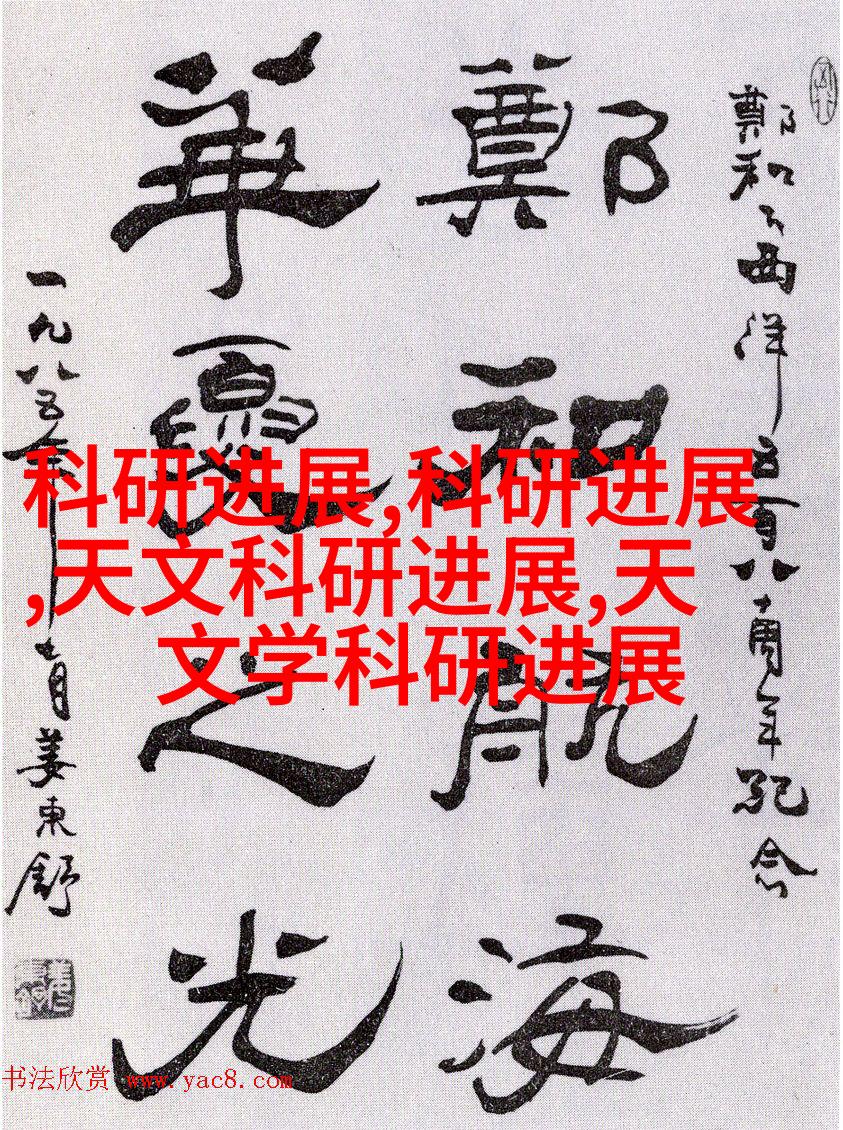 鄭和下西洋五百八十周年紀念
鄭和航海
華夏之光
一九八五年十月姜東舒
科研进展,科研进展
,天文科研进展,天
文学科研进展
书法欣赏 www.yac8.com